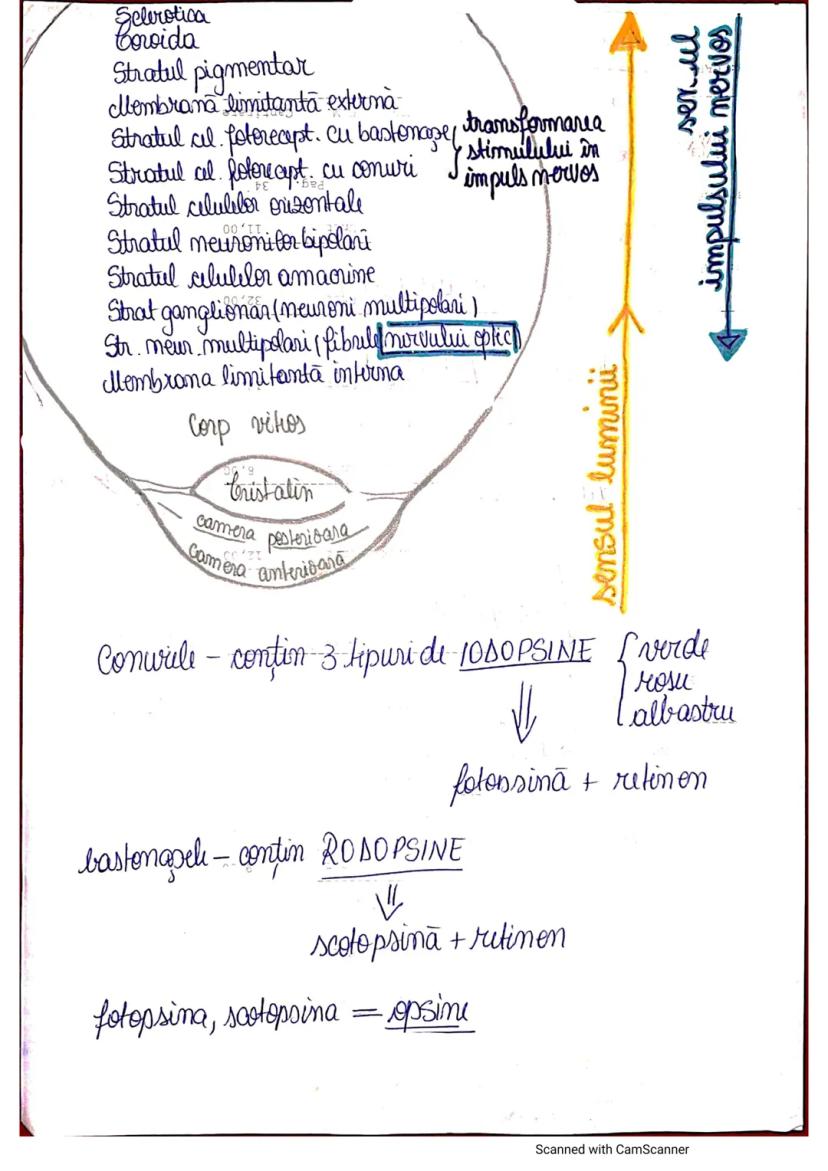 Sclerotica
Coroida
Stratul pigmentar
Membrană limitantă externă
Stratul cel. fotorecept. cu bastonașe
Stratul cel. fotorecept. cu conuri
transformarea
stimulului în
impuls nervos
Stratul celulelor orizontale
Stratul neuronilor bipolari
Stratul celulelor amacrine
Strat ganglionar (neuroni multipolari)
Str. neur. multipolari (fibrele nervului optic)
Membrana limitantă interna
Corp vitros
Cristalin
camera posterioara
Camera anterioară
sensul luminii
sensul
impulsului nervos
Conurile - conțin 3 tipuri de IODOPSINE
verde
rosu
albastru
fotopsină + retinen
bastonașele - conțin RODOPSINE
scotopsină + retinen
fotopsina, scotopsina = opsine
Scanned with CamScanner